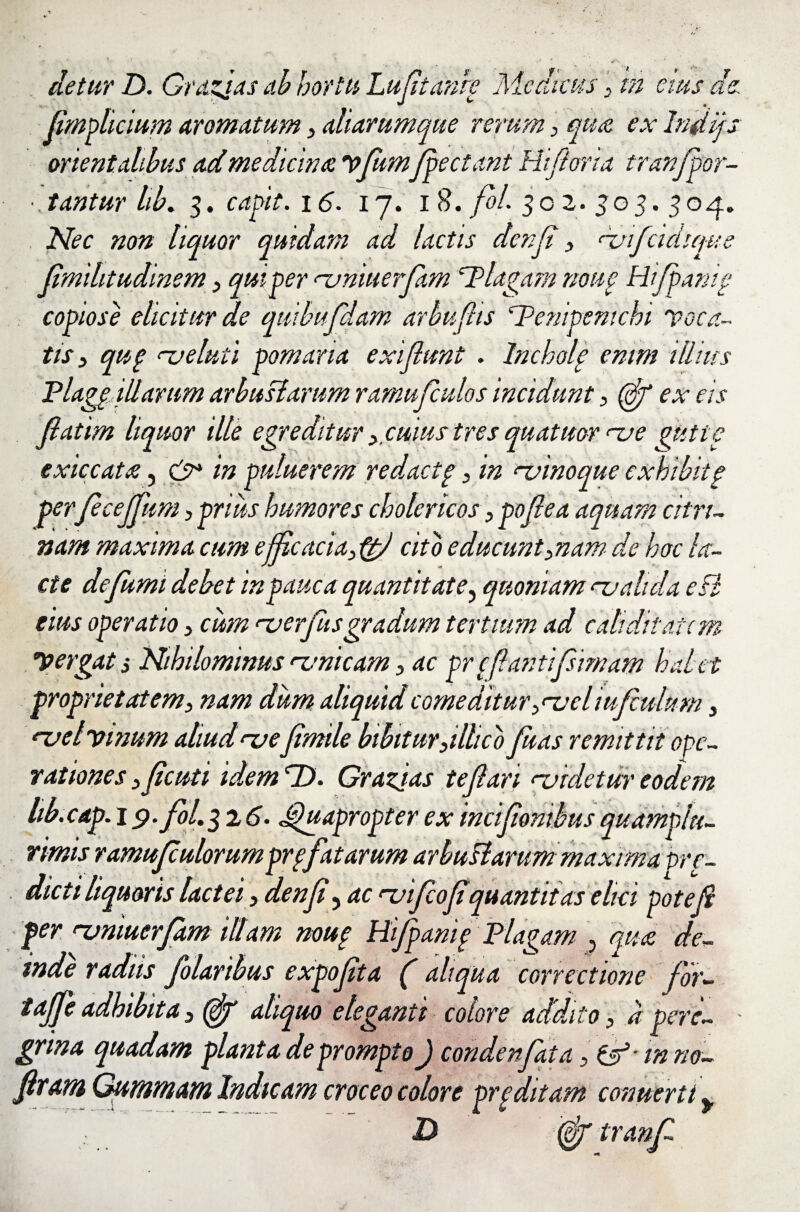 detur D. Grazias ab hortu Lusitanię Medicus, in eius de
simplicium aromatum, aliarumque rerum, quæ ex Indijs
orientalibus ad medicinæ vsum spectant Historia transpor-
tantur lib. 3. capit. 16. 17. 18. fol. 302. 303. 304.
Nec non liquor quidam ad lactis densi, viscidique
similitudinem, qui per vniuersam Plagam nouę Hispanię
copiosè elicitur de quibusdam arbustis Penipenichi voca-
tis, quę veluti pomaria existunt. Incholę enim illius
Plagę illarum arbustarum ramusculos incidunt, & ex eis
statim liquor ille egreditur, cuius tres quatuor ve guttę
exiccatæ, & in puluerem redactę, in vinoque exhibitę
per secessum, priùs humores cholericos, postea aquam citri-
nam maxima cum efficacia, & citò educunt, nam de hoc la-
cte desumi debet in pauca quantitate, quoniam valida est
eius operatio, cùm versus gradum tertium ad caliditatem
vergat; Nihilominus vnicam, ac pręstantissimam habet
proprietatem, nam dùm aliquid comeditur, vel iusculum,
vel vinum aliud ve simile bibitur, illicò suas remittit ope-
rationes, sicuti idem D. Grazias testari videtur eodem
lib. cap. 19. fol. 326. Quapropter ex incisionibus quamplu-
rimis ramusculorum pręfatarum arbustarum maxima prę-
dicti liquoris lactei, densi, ac viscosi quantitas elici potest
per vniuersam illam nouę Hispanię Plagam, quæ de-
indè radiis solaribus exposita ( aliqua correctione for-
tasse adhibita, & aliquo eleganti colore addito, à pere-
grina quadam planta deprompto ) condensata, & in no-
stram Gummam Indicam croceo colore pręditam conuerti,
D & transf-